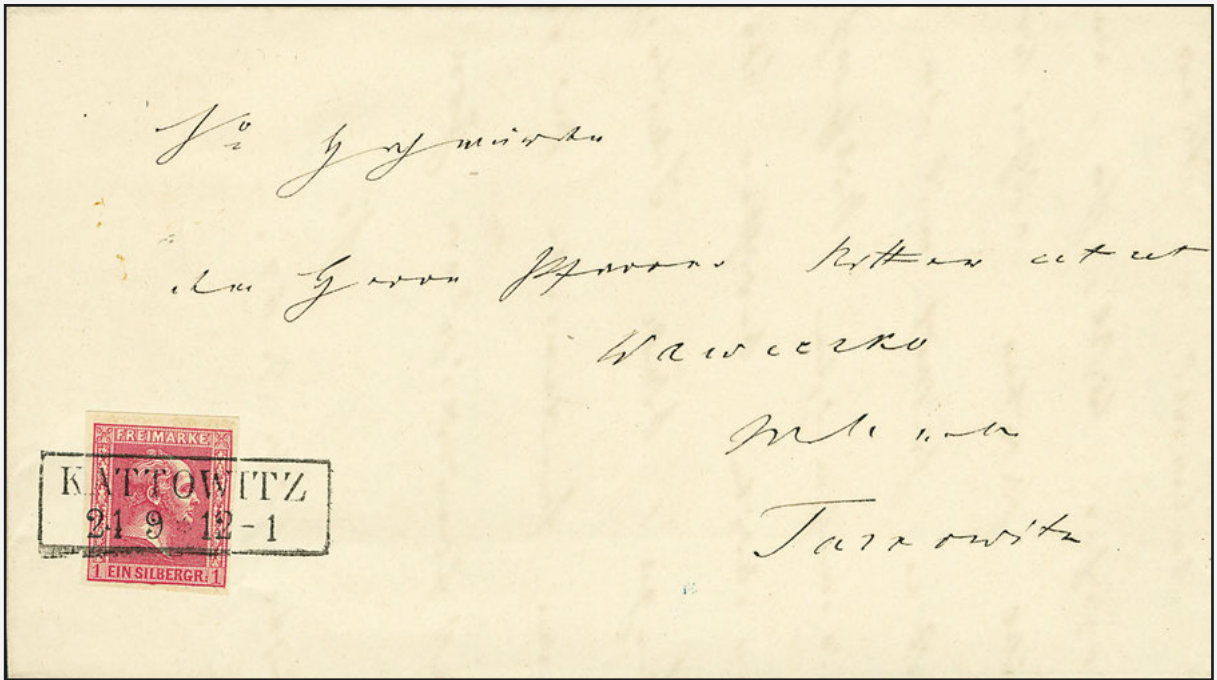 Sr Hochwürden
dem Herrn Pfarrer
Wawreczko
Tarnowitz
FREIMARKE
KATTOWITZ
21 9 12-1
1 EIN SILBERGR. 1